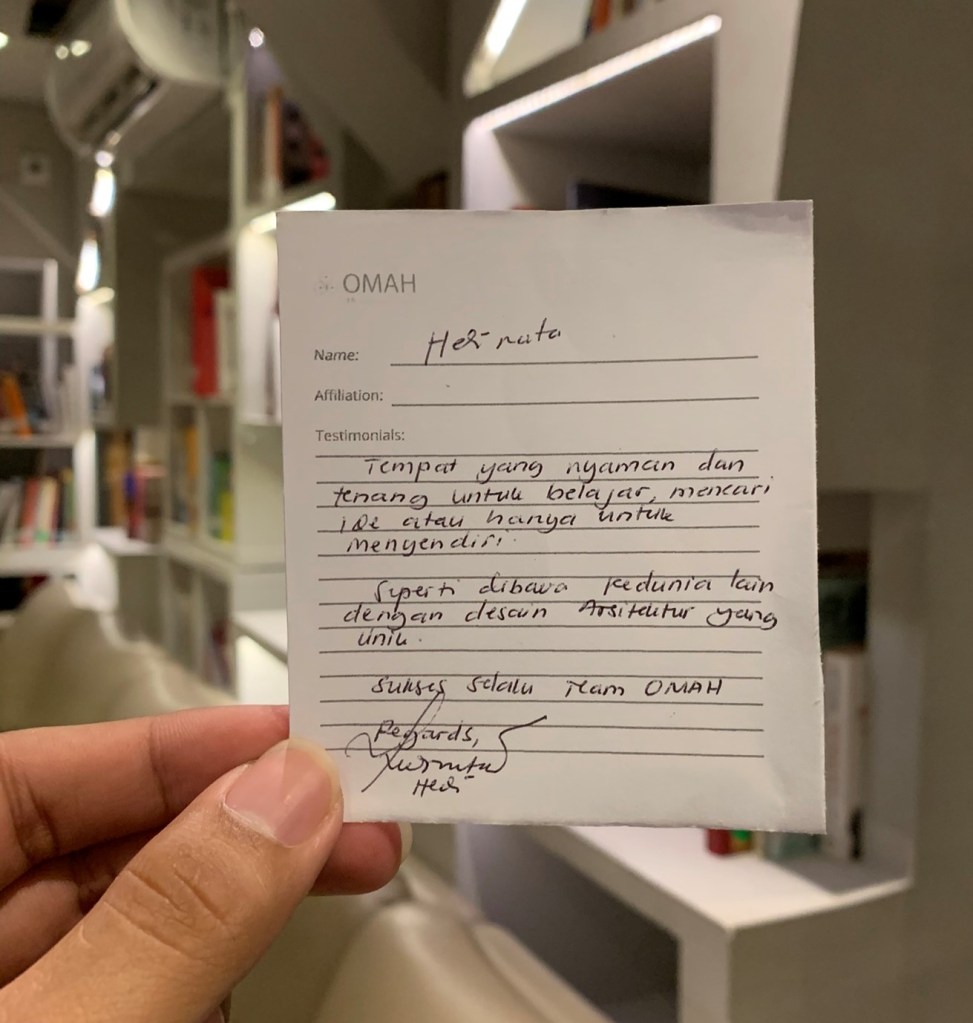 OMAH
Name: Hedi nata
Affiliation:
Testimonials:
Tempat yang nyaman dan
tenang untuk belajar, mencari
ide atau hanya untuk
menyendiri.
Seperti dibawa kedunia lain
dengan desain Arsitektur yang
unik.
Sukses selalu Team OMAH
Regards,
Hedi